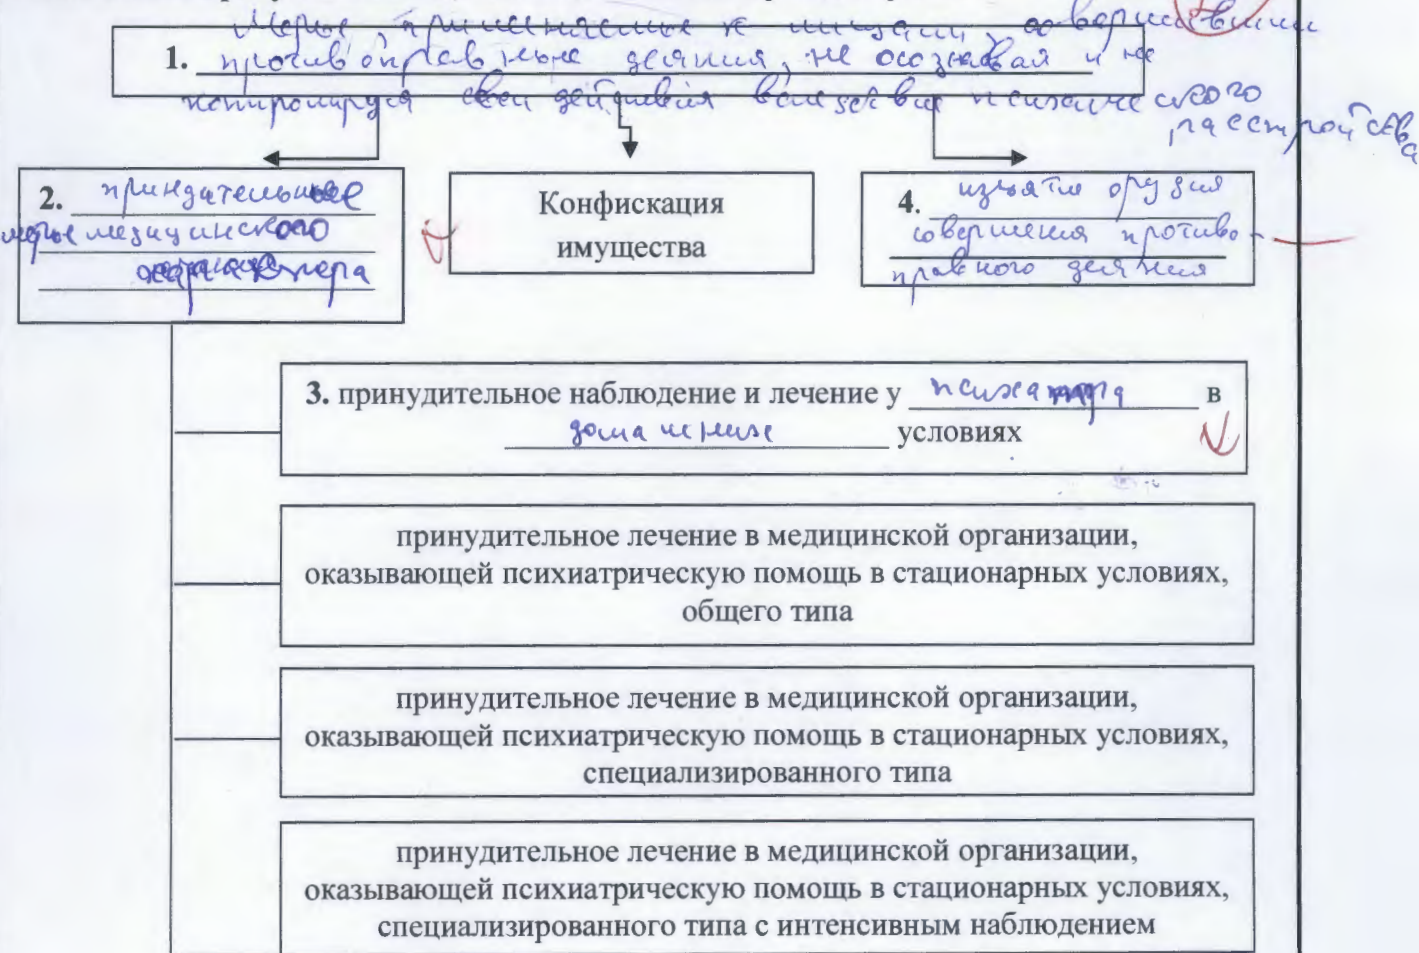 Меры, применяемые к лицам, совершившим
1. противоправные деяния, не осознавая и не
контролируя свои действия вследствие психического
расстройства
2. принудательные
меры медицинского
характера
Конфискация
имущества
4. изъятие орудия
совершения противо-
правного деяния
3. принудительное наблюдение и лечение у психиатра в
домашних условиях
принудительное лечение в медицинской организации,
оказывающей психиатрическую помощь в стационарных условиях,
общего типа
принудительное лечение в медицинской организации,
оказывающей психиатрическую помощь в стационарных условиях,
специализированного типа
принудительное лечение в медицинской организации,
оказывающей психиатрическую помощь в стационарных условиях,
специализированного типа с интенсивным наблюдением